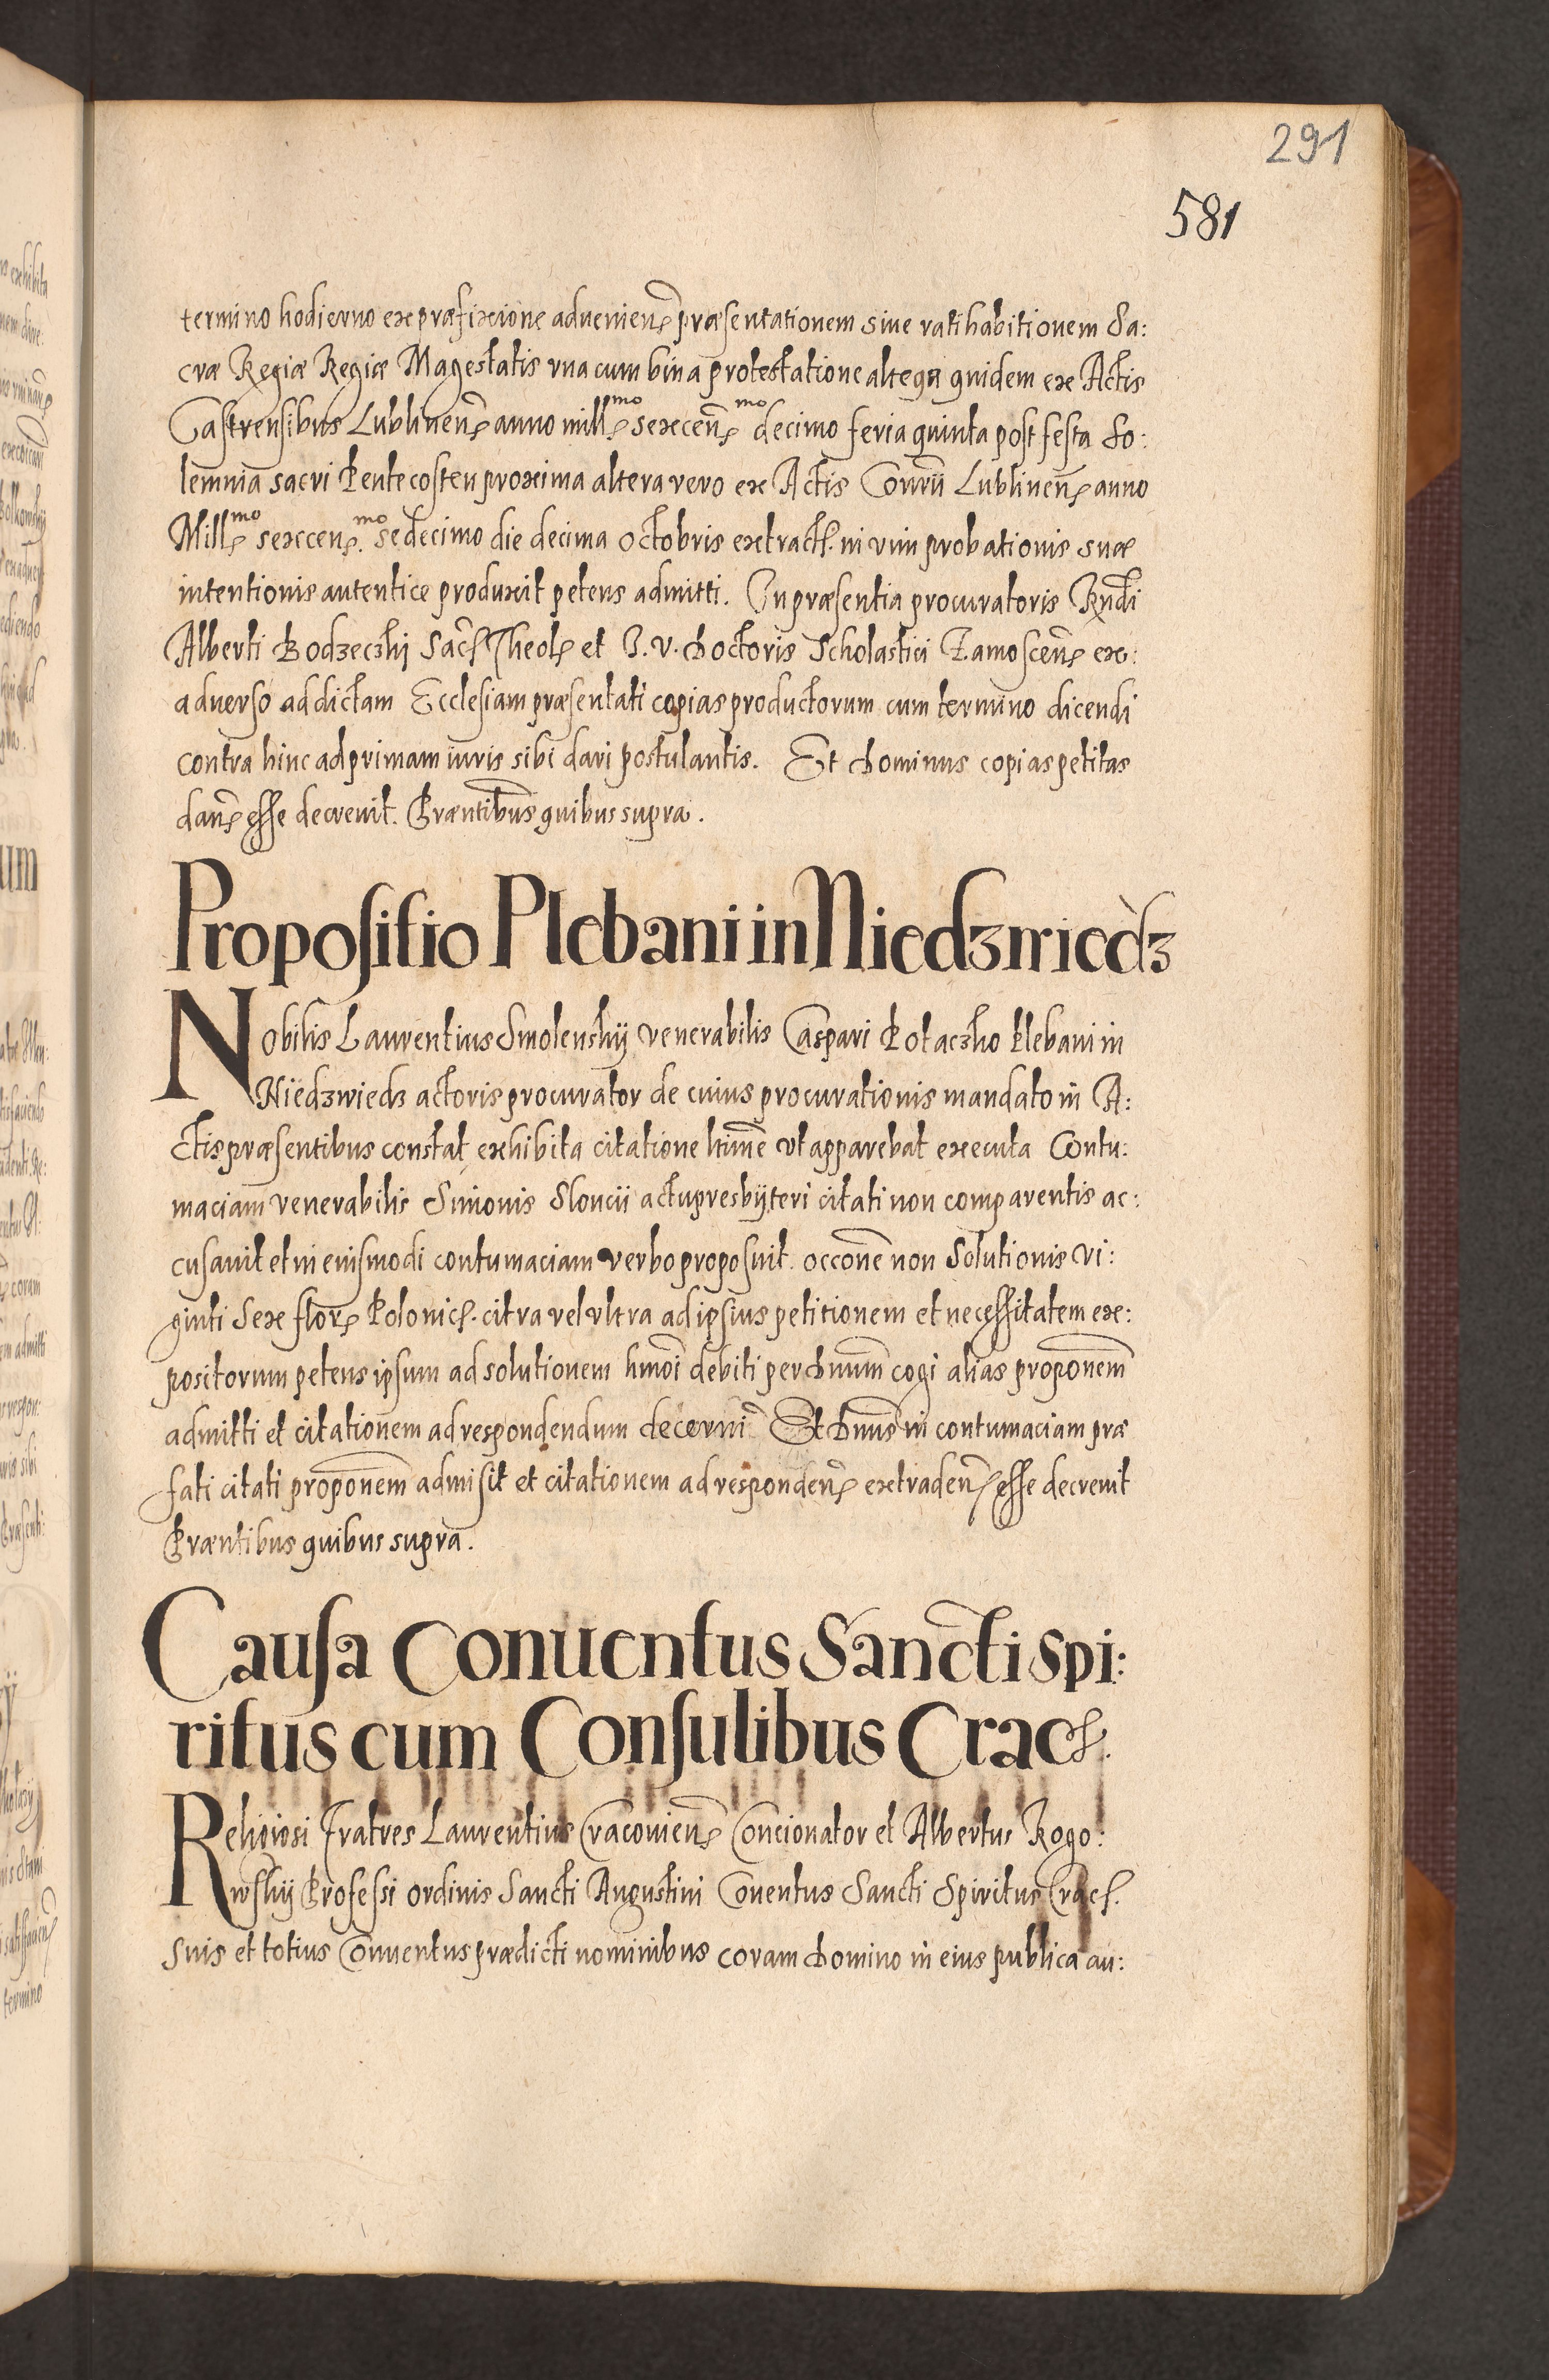 291
581
termino hodierno ex præfixione adveniens præsentationem sive ratihabitionem Sa:
cræ Regiæ Regiæ Magestatis vna cum bina protestatione altera quidem ex Actis
Castrensibus Lublinens anno mill^mo sexcen^mo decimo feria quinta post festa So:
lemnia sacri Pentecosten proxima altera vero ex Actis Lublinens anno
Mill^mo sexcen^mo sedecimo die decima octobris extract. in vim probationis suæ
intentionis autentice produxit petens admitti. In præsentia procuratoris Rndi
Alberti Bodzeczkij Sacr Theol et I. V. Doctoris Scholastici Zamoscens ex:
adverso ad dictam Ecclesiam præsentati copias productorum cum termino dicendi
contra hinc ad primam iuris sibi dari postulantis. Et Dominus copias petitas
dan esse decrevit. Præntibus quibus supra.
Propositio Plebani in Niedzwiedz
Nobilis Laurentius Smolenskij venerabilis Caspari Potaczko Plebani in
Niedzwiedz actoris procurator de cuius procurationis mandato in A:
ctis præsentibus constat exhibita citatione ltime vt apparebat executa Contu:
maciam venerabilis Simonis Sloncii actu presbyteri citati non comparentis ac:
cusavit et in eiusmodi contumaciam verbo proposuit. occone non Solutionis vi:
ginti Sex flor Polonic. citra vel vltra ad ipsius petitionem et necessitatem ex:
positorum petens ipsum ad solutionem hmoi debiti per Dnum cogi alias proponem
admitti et citationem ad respondendum decerni Et Dnus in contumaciam præ
fati citati proponem admisit et citationem ad responden extraden esse decrevit
Præntibus quibus supra.
Causa Conventus Sancti Spi:
ritus cum Consulibus Crac.
Religiosi Fratres Laurentius Cracoviens Concionator et Albertus Rogo:
wskij Professi ordinis Sancti Augustini Conventus Sancti Spiritus Crac.
Suis et totius Conventus prædicti nominibus coram Domino in eius publica au: